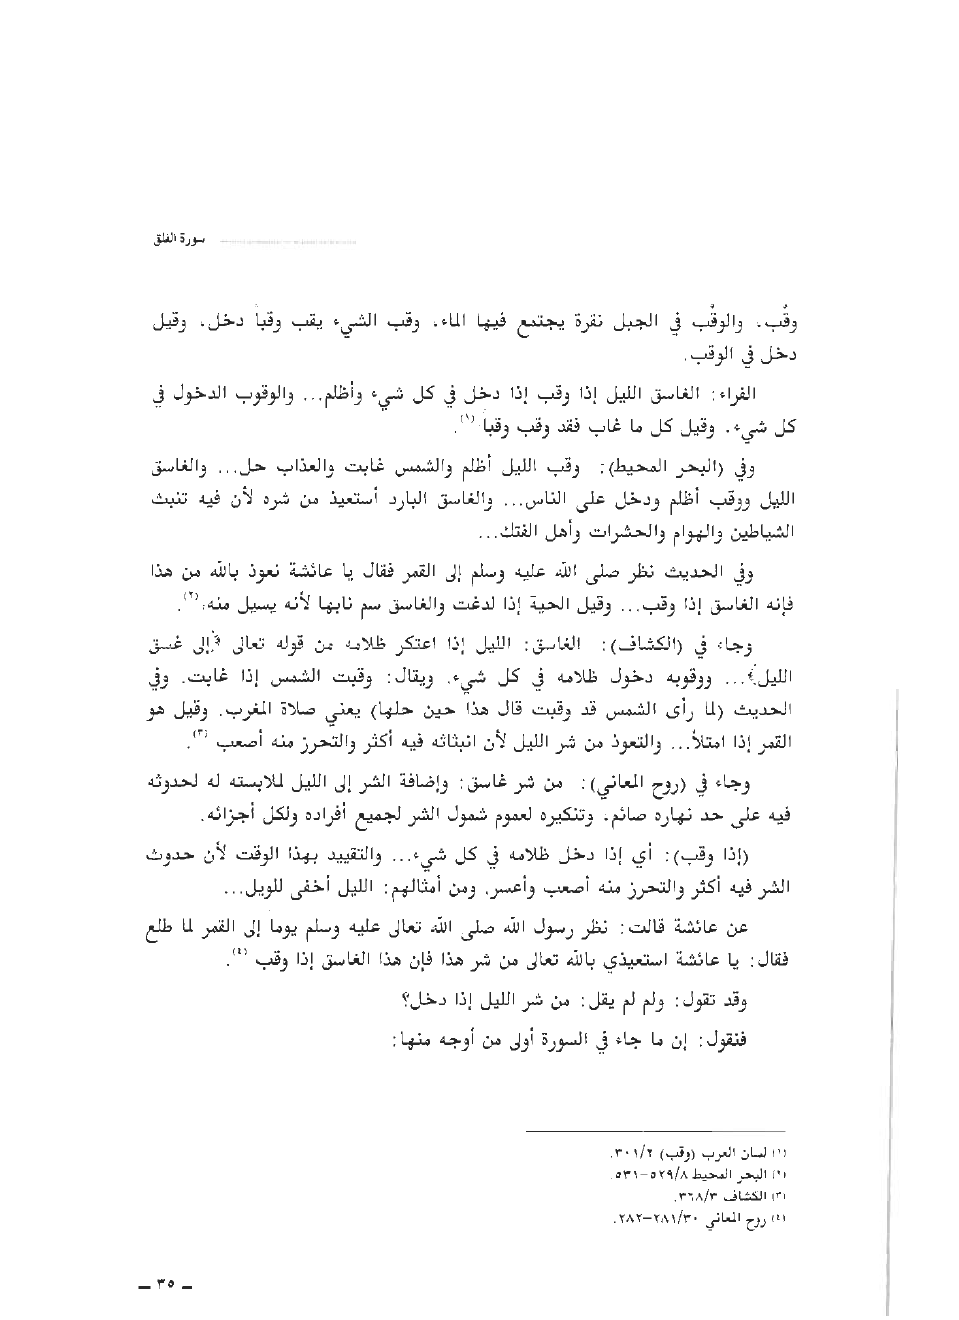 سورة الفلق
وقُب، والوقُب في الجبل نقرة يجتمع فيها الماء، وقب الشيء يقب وقباً دخل، وقيل
دخل في الوقب.
الفراء: الغاسق الليل إذا وقب إذا دخل في كل شيء وأظلم... والوقوب الدخول في
كل شيء، وقيل كل ما غاب فقد وقب وقباً(١).
وفي (البحر المحيط): وقب الليل أظلم والشمس غابت والعذاب حل... والغاسق
الليل ووقب أظلم ودخل على الناس... والغاسق البارد أستعيذ من شره لأن فيه تنبث
الشياطين والهوام والحشرات وأهل الفتك...
وفي الحديث نظر صلى الله عليه وسلم إلى القمر فقال يا عائشة نعوذ بالله من هذا
فإنه الغاسق إذا وقب... وقيل الحية إذا لدغت والغاسق سم نابها لأنه يسيل منه،(٢).
وجاء في (الكشاف): الغاسق: الليل إذا اعتكر ظلامه من قوله تعالى ﴿إلى غسق
الليل﴾... ووقوبه دخول ظلامه في كل شيء، ويقال: وقبت الشمس إذا غابت. وفي
الحديث (لما رأى الشمس قد وقبت قال هذا حين حلها) يعني صلاة المغرب. وقيل هو
القمر إذا امتلأ... والتعوذ من شر الليل لأن انبثاثه فيه أكثر والتحرز منه أصعب (٣).
وجاء في (روح المعاني): من شر غاسق: وإضافة الشر إلى الليل لملابسته له لحدوثه
فيه على حد نهاره صائم، وتنكيره لعموم شمول الشر لجميع أفراده ولكل أجزائه.
(إذا وقب): أي إذا دخل ظلامه في كل شيء... والتقييد بهذا الوقت لأن حدوث
الشر فيه أكثر والتحرز منه أصعب وأعسر. ومن أمثالهم: الليل أخفى للويل...
عن عائشة قالت: نظر رسول الله صلى الله تعالى عليه وسلم يوماً إلى القمر لما طلع
فقال: يا عائشة استعيذي بالله تعالى من شر هذا فإن هذا الغاسق إذا وقب (٤).
وقد تقول: ولم لم يقل: من شر الليل إذا دخل؟
فنقول: إن ما جاء في السورة أولى من أوجه منها:
(١) لسان العرب (وقب) ٣٠١/٢.
(٢) البحر المحيط ٥٢٩/٨-٥٣١.
(٣) الكشاف ٣٦٨/٣.
(٤) روح المعاني ٢٨١/٣٠-٢٨٢.
_ ٣٥ _